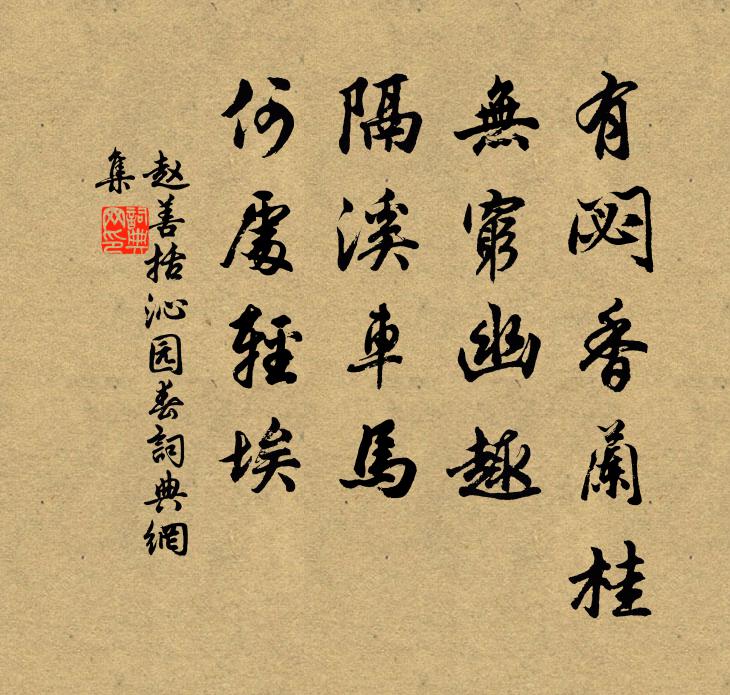 有閟香蘭桂
無窮幽趣
隔溪車馬
何處輕埃
赵善括沁园春詞典網
集
詞典网印